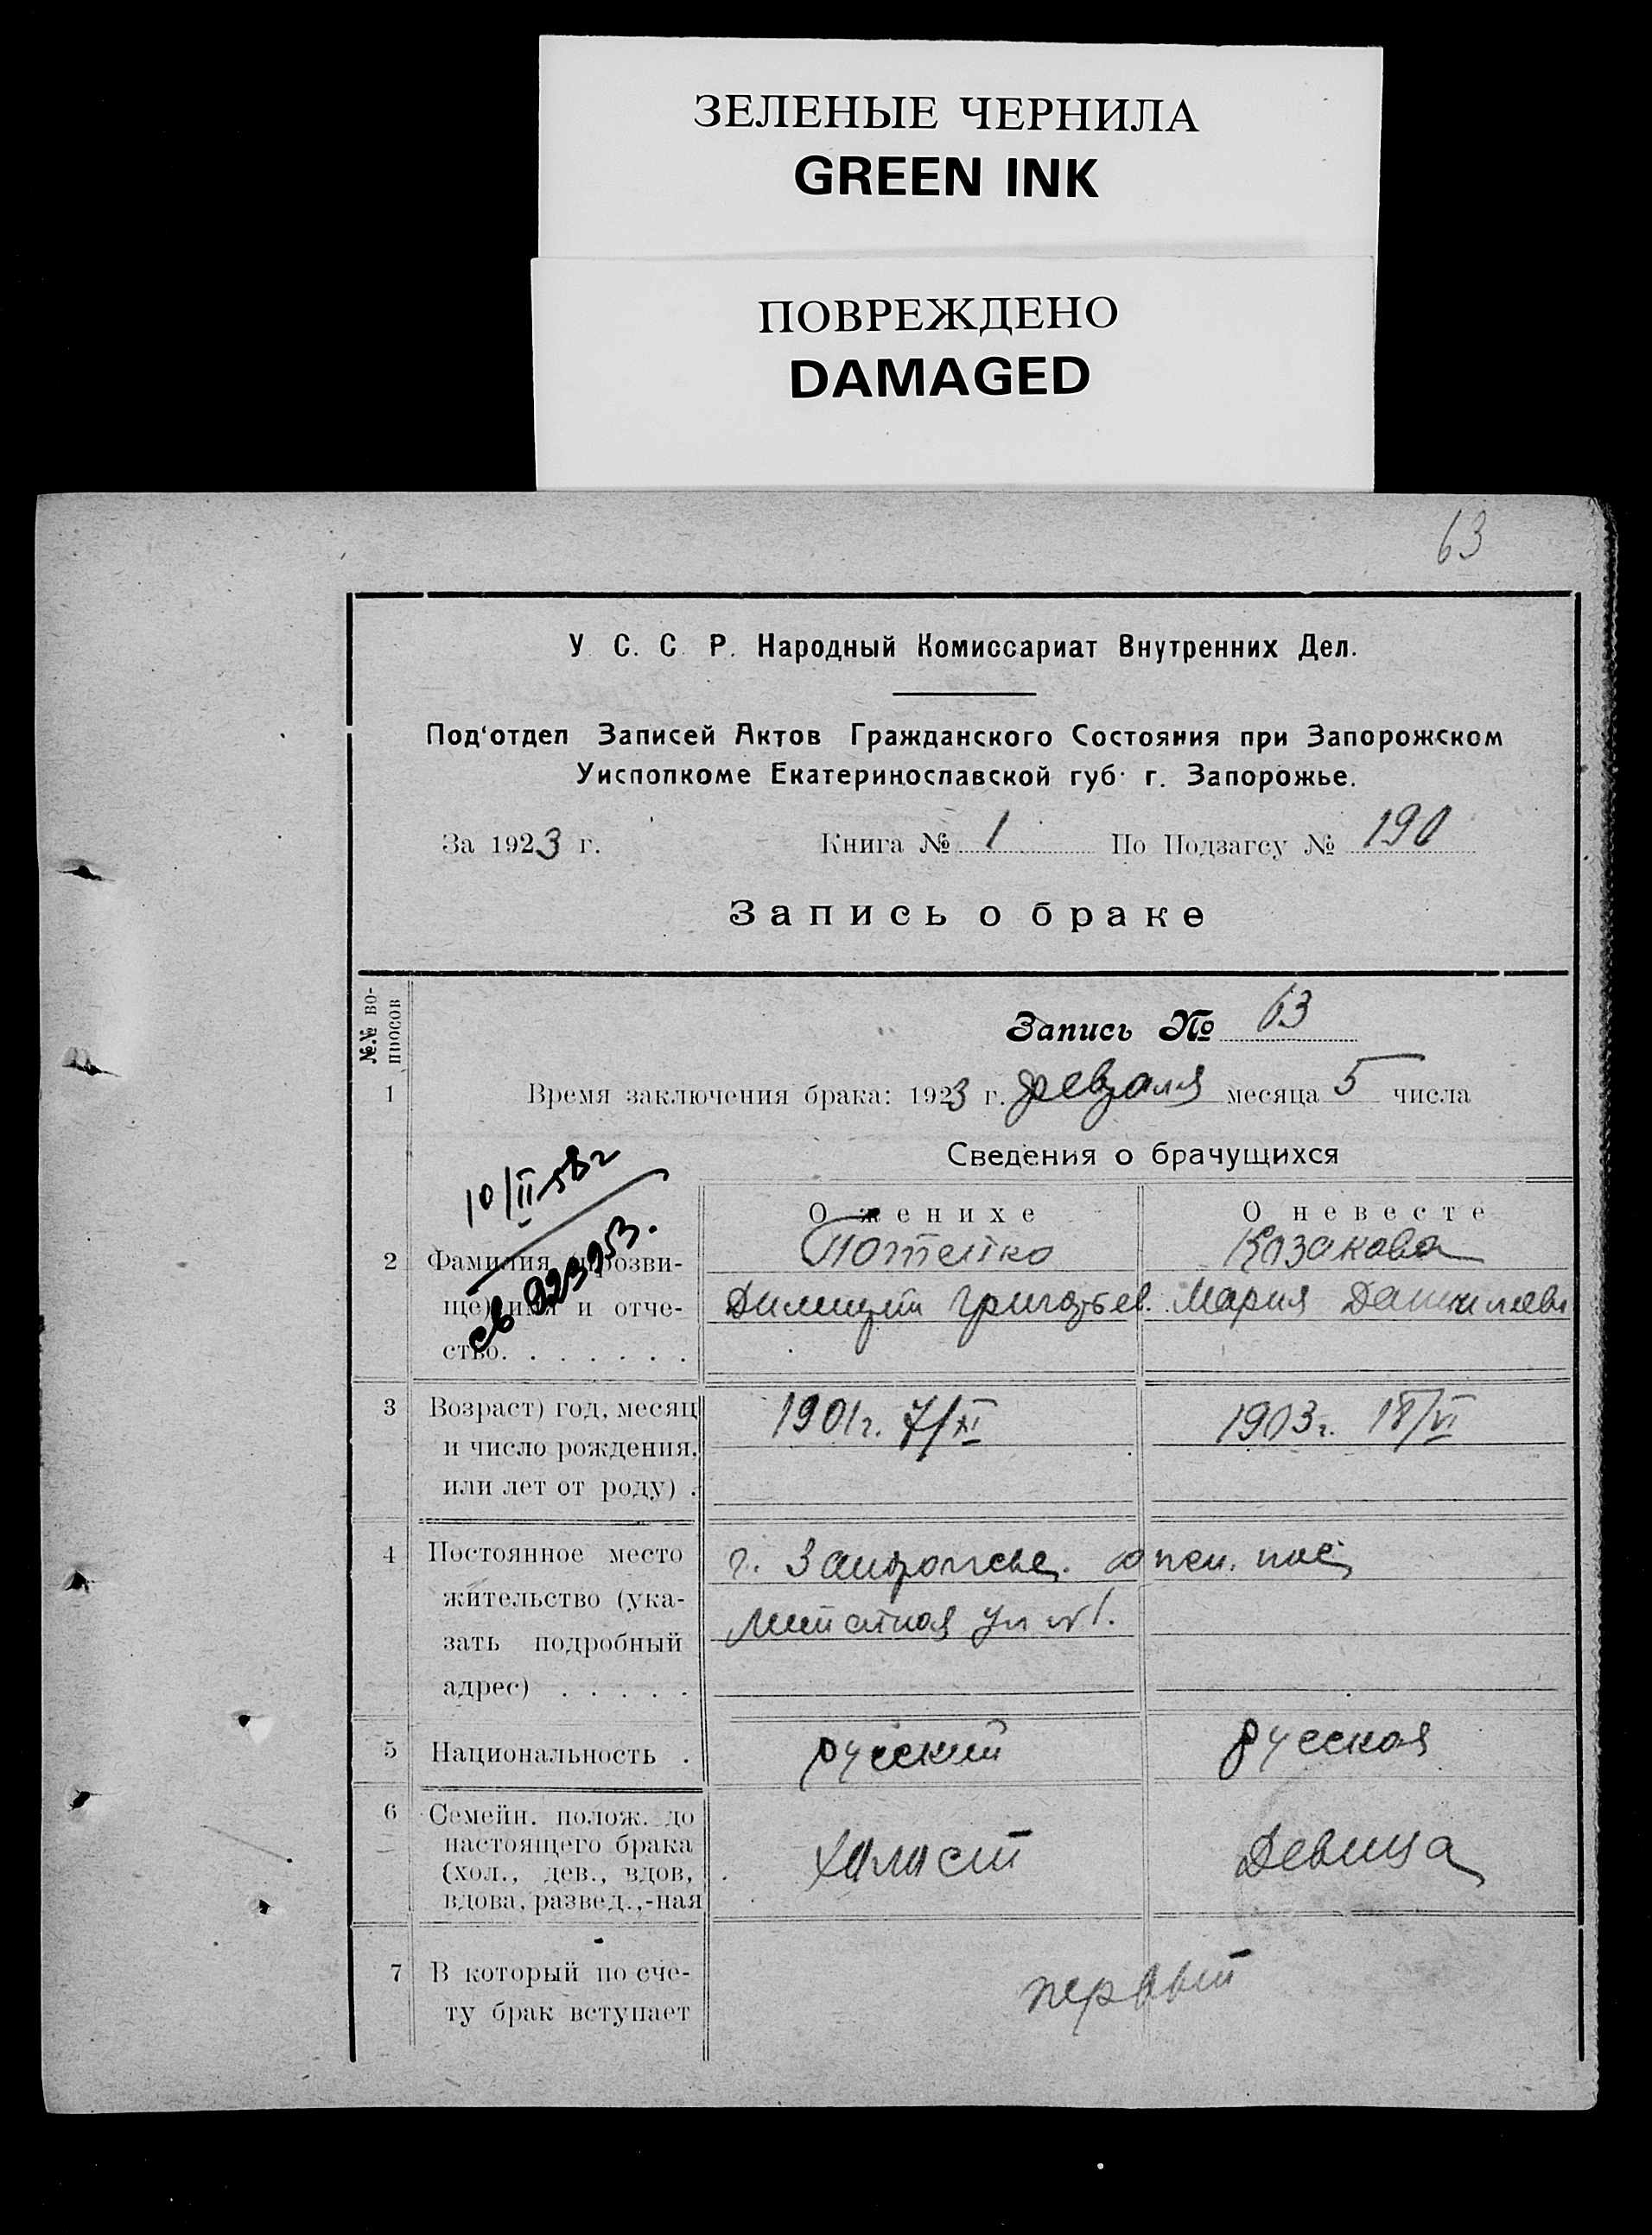 ЗЕЛЕНЫЕ ЧЕРНИЛА
GREEN INK
ПОВРЕЖДЕНО
DAMAGED
63
У. С. С. Р. Народный Комиссариат Внутренних Дел.
Под'отдел Записей Актов Гражданского Состояния при Запорожском
Уисполкоме Екатеринославской губ. г. Запорожье.
За 1923 г. Книга № 1 По Подзагсу № 190
Запись о браке
№№ во-
просов
Запись № 63
1 Время заключения брака: 1923 г. февраля месяца 5 числа
Сведения о брачущихся
10/II-58г
св 923953.
О женихе О невесте
2 Фамилия (прозви- Потейко Козакова
ще) имя и отче- Димитрий Григорьев. Мария Даниилови
ство. . . . . . .
3 Возраст) год, месяц 1901г. 7/XI 1903г. 18/VI
и число рождения,
или лет от роду) .
4 Постоянное место г. Запорожье.
жительство (ука- ул №1.
зать подробный
адрес) . . . . .
5 Национальность . русский русская
6 Семейн. полож. до
настоящего брака
(хол., дев., вдов, холост Девица
вдова, развед.,-ная
7 В который по сче- первый
ту брак вступает